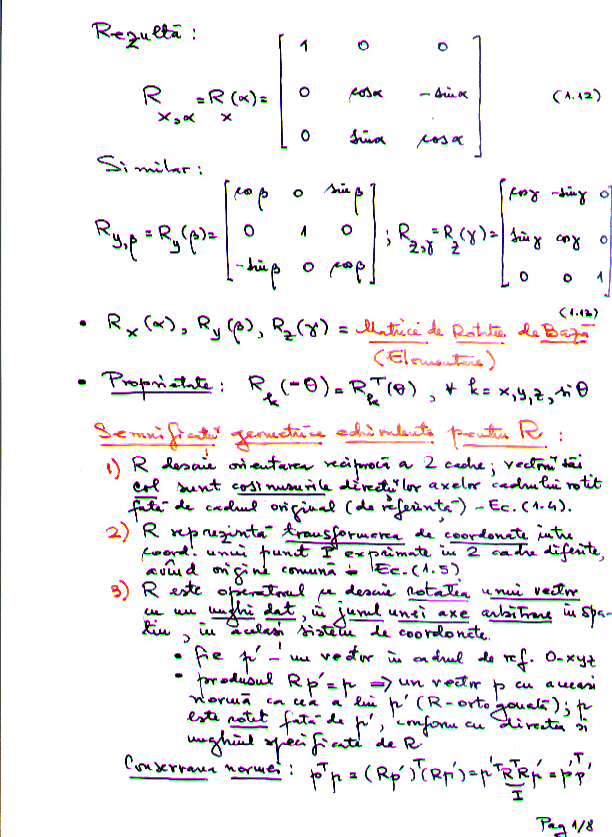 Rezultă :
R x,α = R x (α) = [ 1 0 0 ; 0 cosα -sinα ; 0 sinα cosα ] (1.12)
Similar :
R y,β = R y (β) = [ cosβ 0 sinβ ; 0 1 0 ; -sinβ 0 cosβ ] ; R z,γ = R z (γ) = [ cosγ -sinγ 0 ; sinγ cosγ 0 ; 0 0 1 ]
(1.13)
• Rx(α), Ry(β), Rz(γ) = Matrici de Rotatie de Bază
(Elementare)
• Proprietate : Rk(-θ) = Rk^T(θ) , ∀ k = x,y,z, si θ
Semnificatii geometrice echivalente pentru R :
1) R descrie orientarea reciprocă a 2 cadre ; vectorii săi
col sunt cosinusurile directiilor axelor cadrului rotit
fată de cadrul original (de referintă) - Ec. (1.4).
2) R reprezintă transformarea de coordonate intre
coord. unui punct P exprimate in 2 cadre diferite,
având origine comună - Ec. (1.5)
3) R este operatorul ce descrie rotatia unui vector
cu un unghi dat, in jurul unei axe arbitrare in spa-
tiu , in acelasi sistem de coordonate.
• fie p' - un vector in cadrul de ref. O-xyz
• produsul Rp' = p => un vector p cu aceeasi
normă ca cea a lui p' (R-ortogonală) ; p
este rotit fată de p', conform cu directia si
unghiul specificate de R
Conservarea normei : p^T p = (Rp')^T (Rp') = p'^T R^T R p' = p'^T p'
I
Pag 1/8